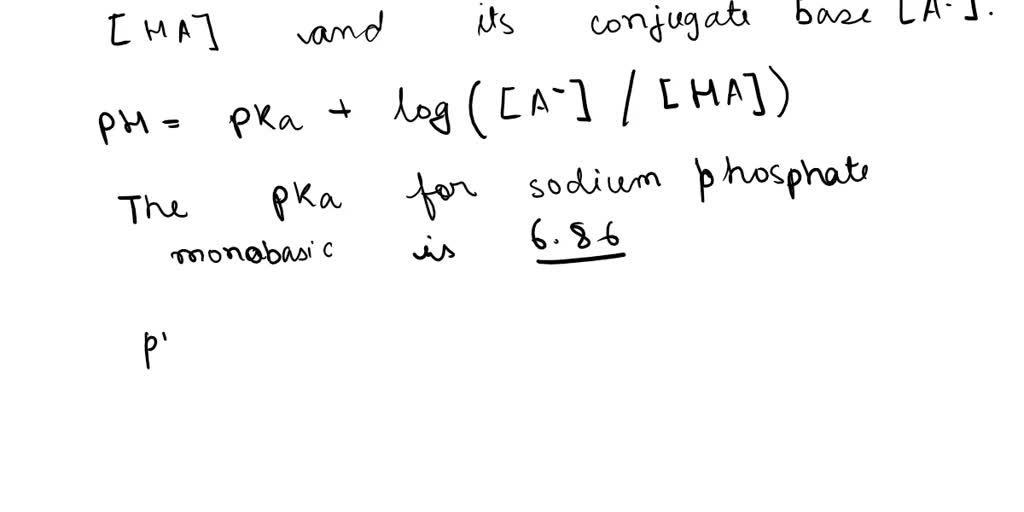 [HA] and its conjugate base [A-].
pH = pKa + log([A-] / [HA])
The pKa for sodium phosphate
monobasic is 6.86
p'